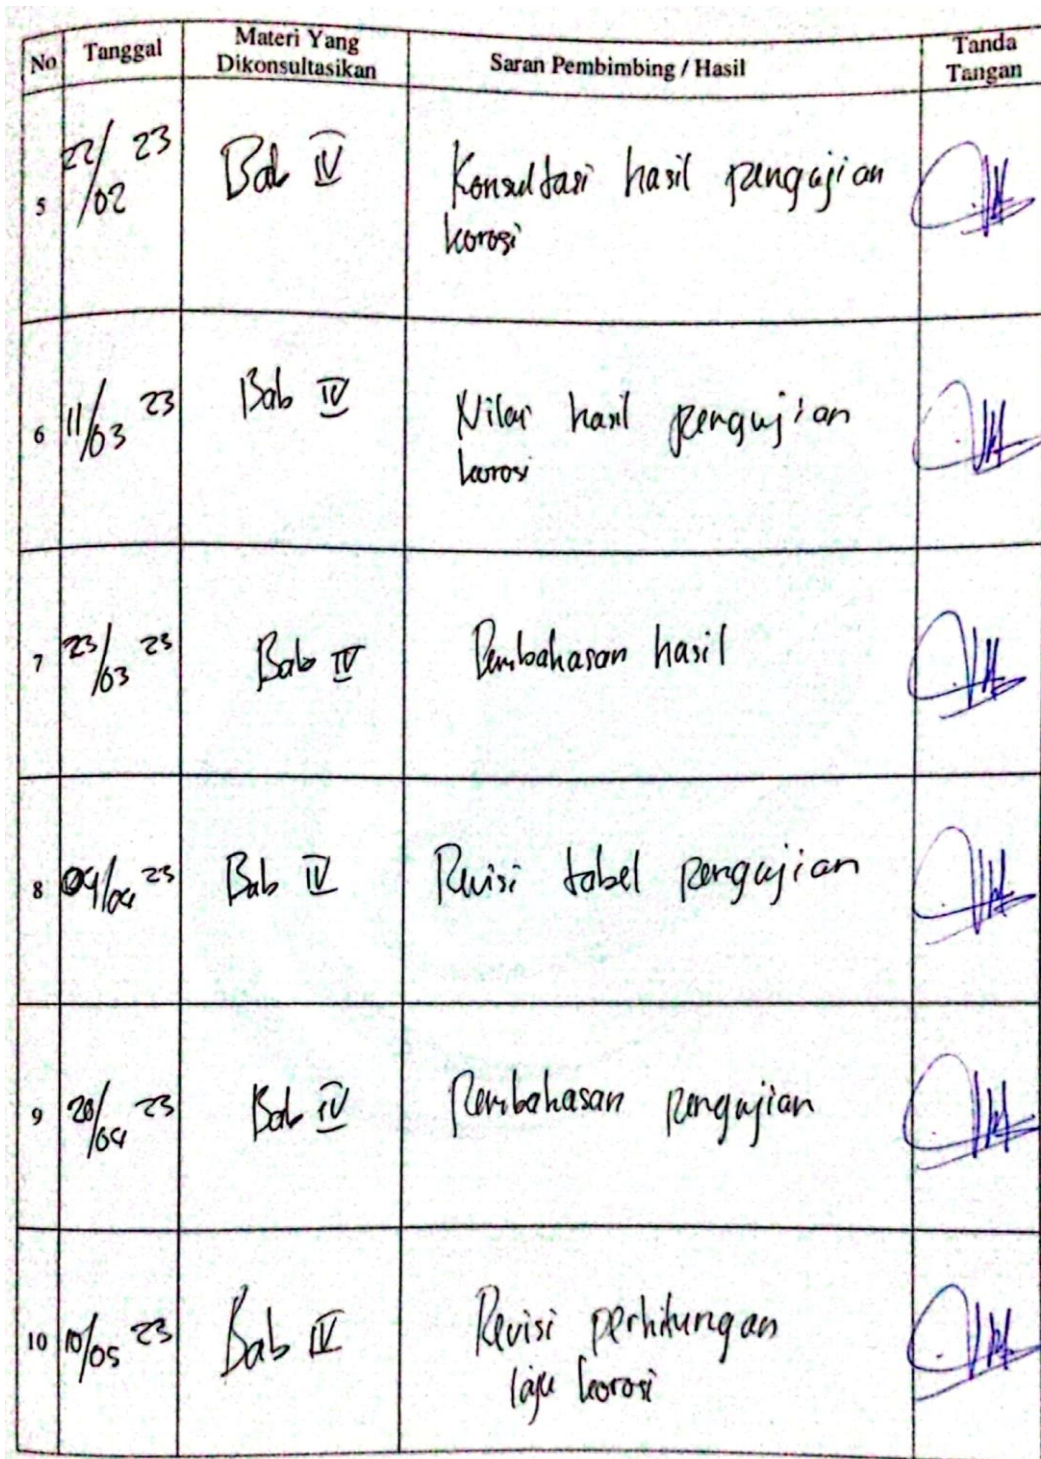 No Tanggal Materi Yang Dikonsultasikan Saran Pembimbing / Hasil Tanda Tangan
5 22/02 23 Bab IV Konsultasi hasil pengujian
korosi
6 11/03 23 Bab IV Nilai hasil pengujian
korosi
7 23/03 23 Bab IV Pembahasan hasil
8 04/04 23 Bab IV Revisi tabel pengujian
9 20/04 23 Bab IV Pembahasan pengujian
10 10/05 23 Bab IV Revisi perhitungan
laju korosi